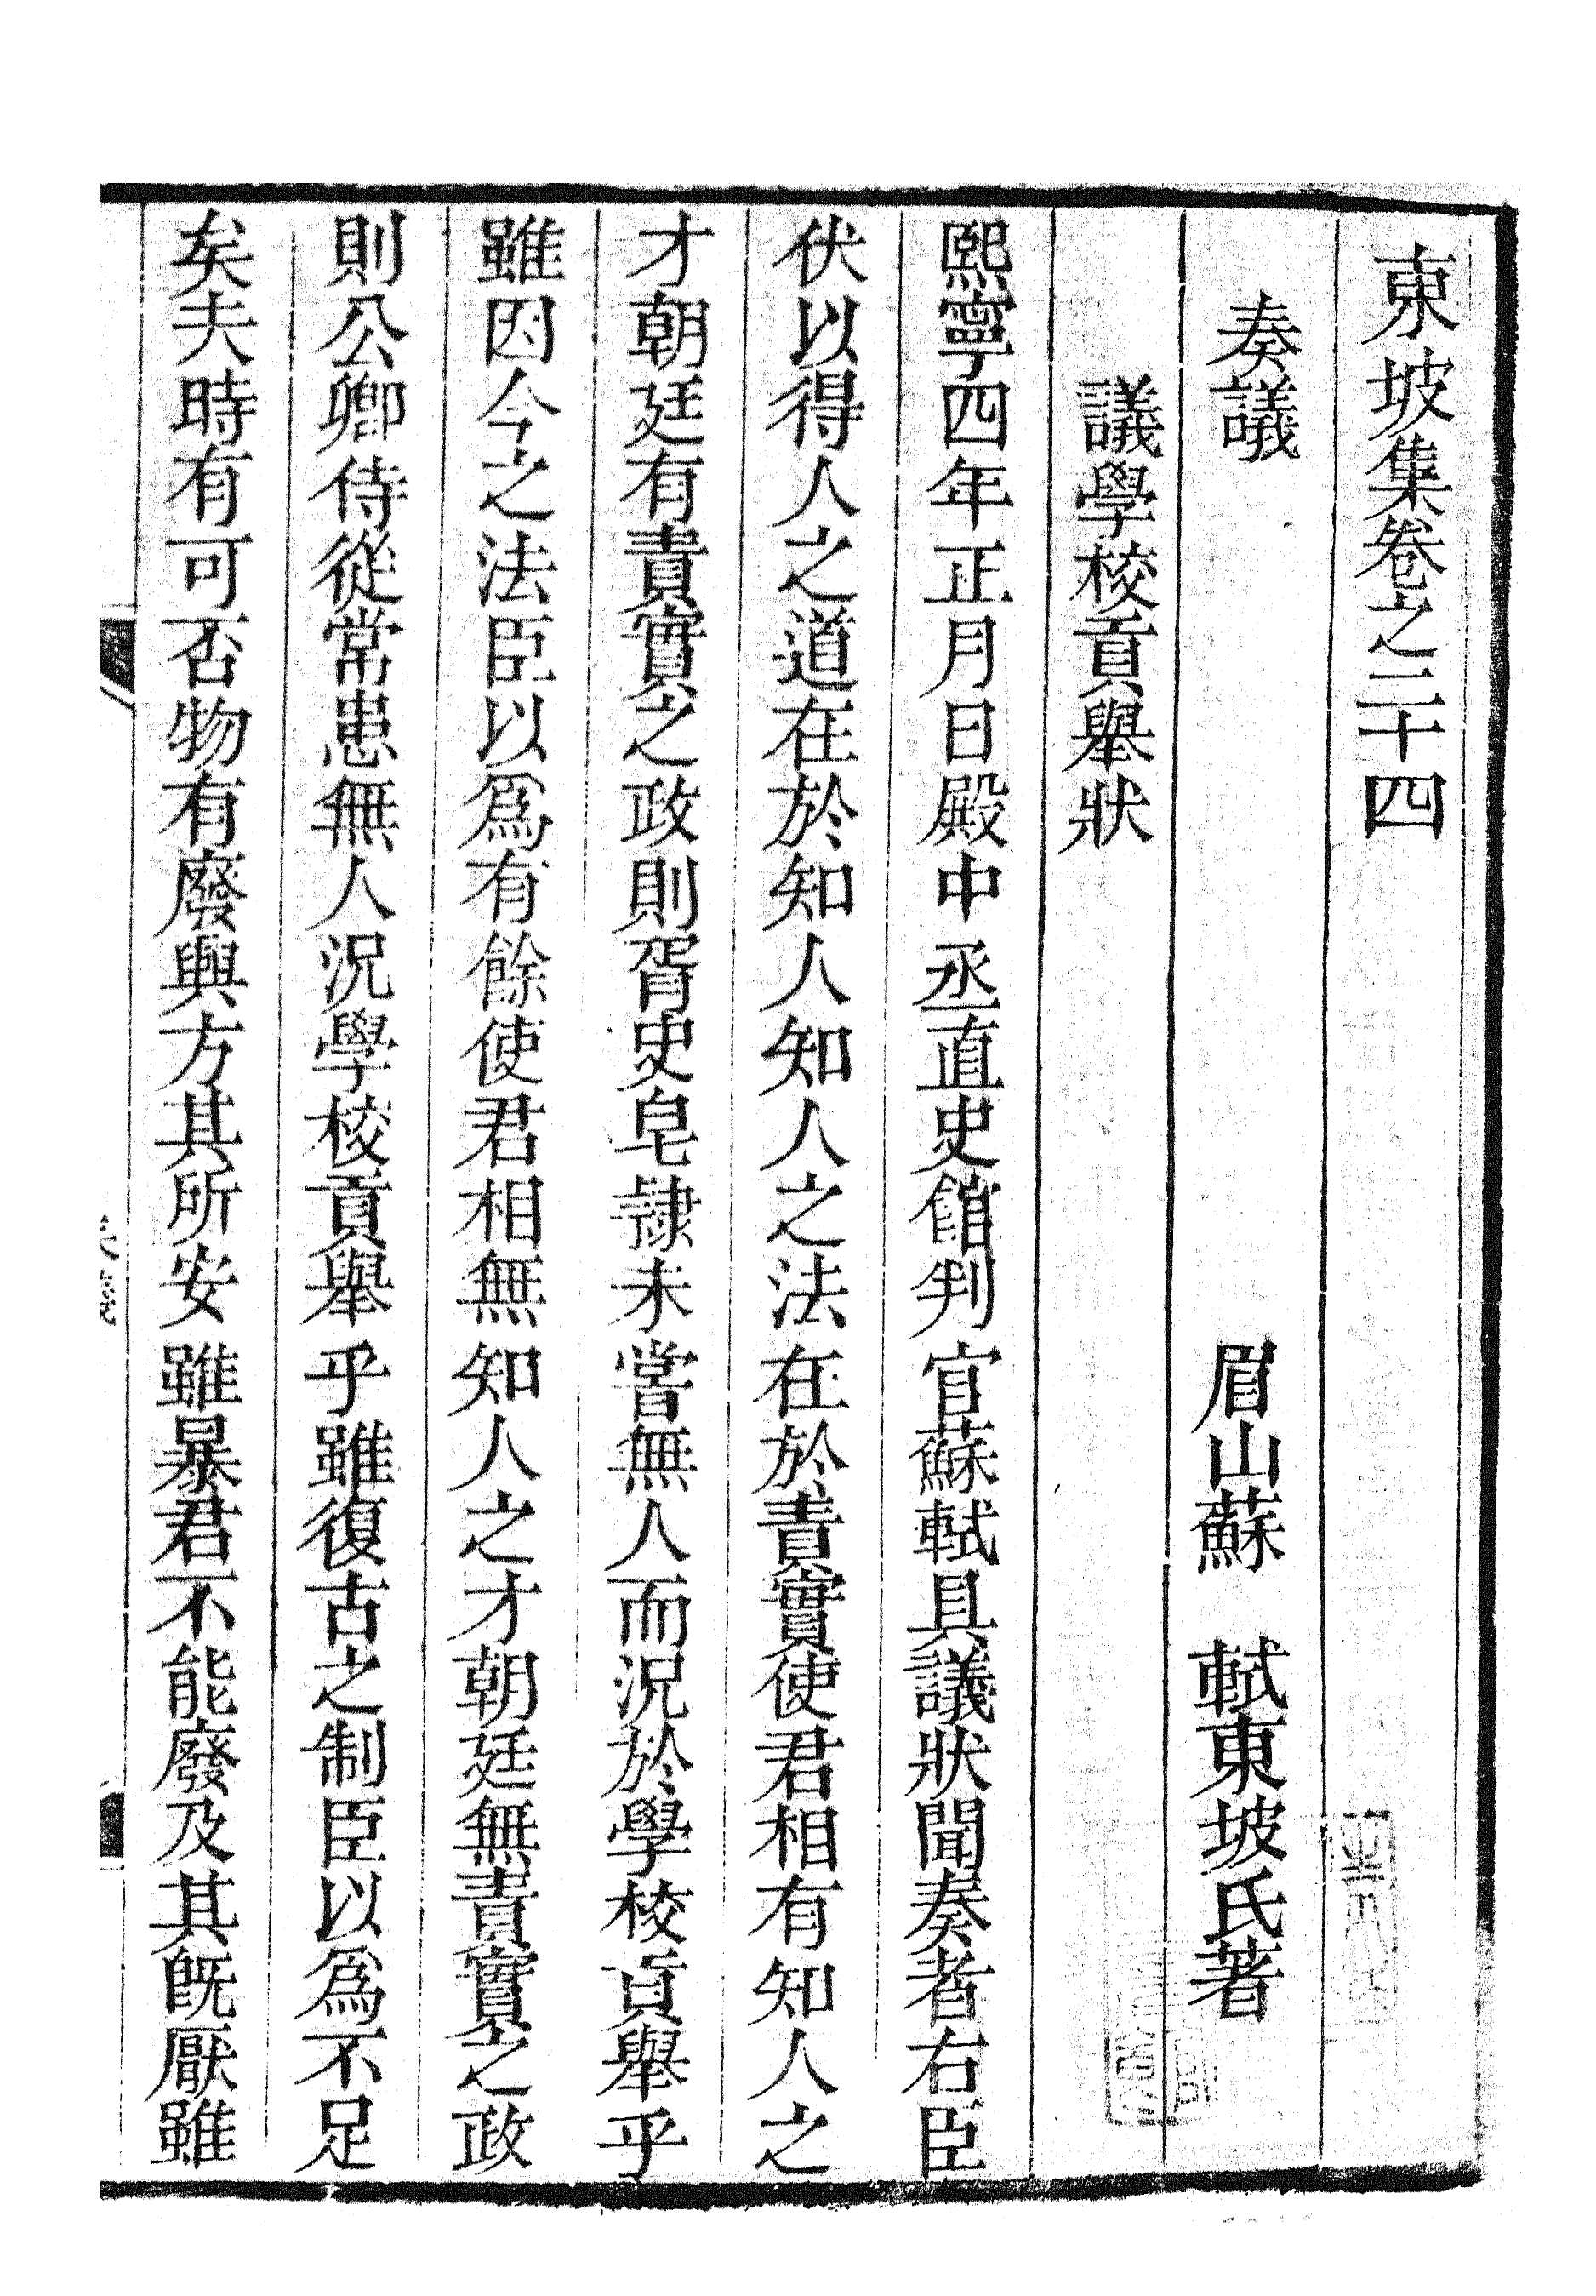 東坡集卷之二十四
奏議 眉山蘇 軾東坡氏著
議學校貢舉狀
熙寧四年正月日殿中丞直史館判官蘇軾具議狀聞奏者右臣
伏以得人之道在於知人知人之法在於責實使君相有知人之
才朝廷有責實之政則胥史皂隸未嘗無人而況於學校貢舉乎
雖因今之法臣以爲有餘使君相無知人之才朝廷無責實之政
則公卿侍從常患無人況學校貢舉乎雖復古之制臣以爲不足
矣夫時有可否物有廢興方其所安雖暴君不能廢及其旣厭雖